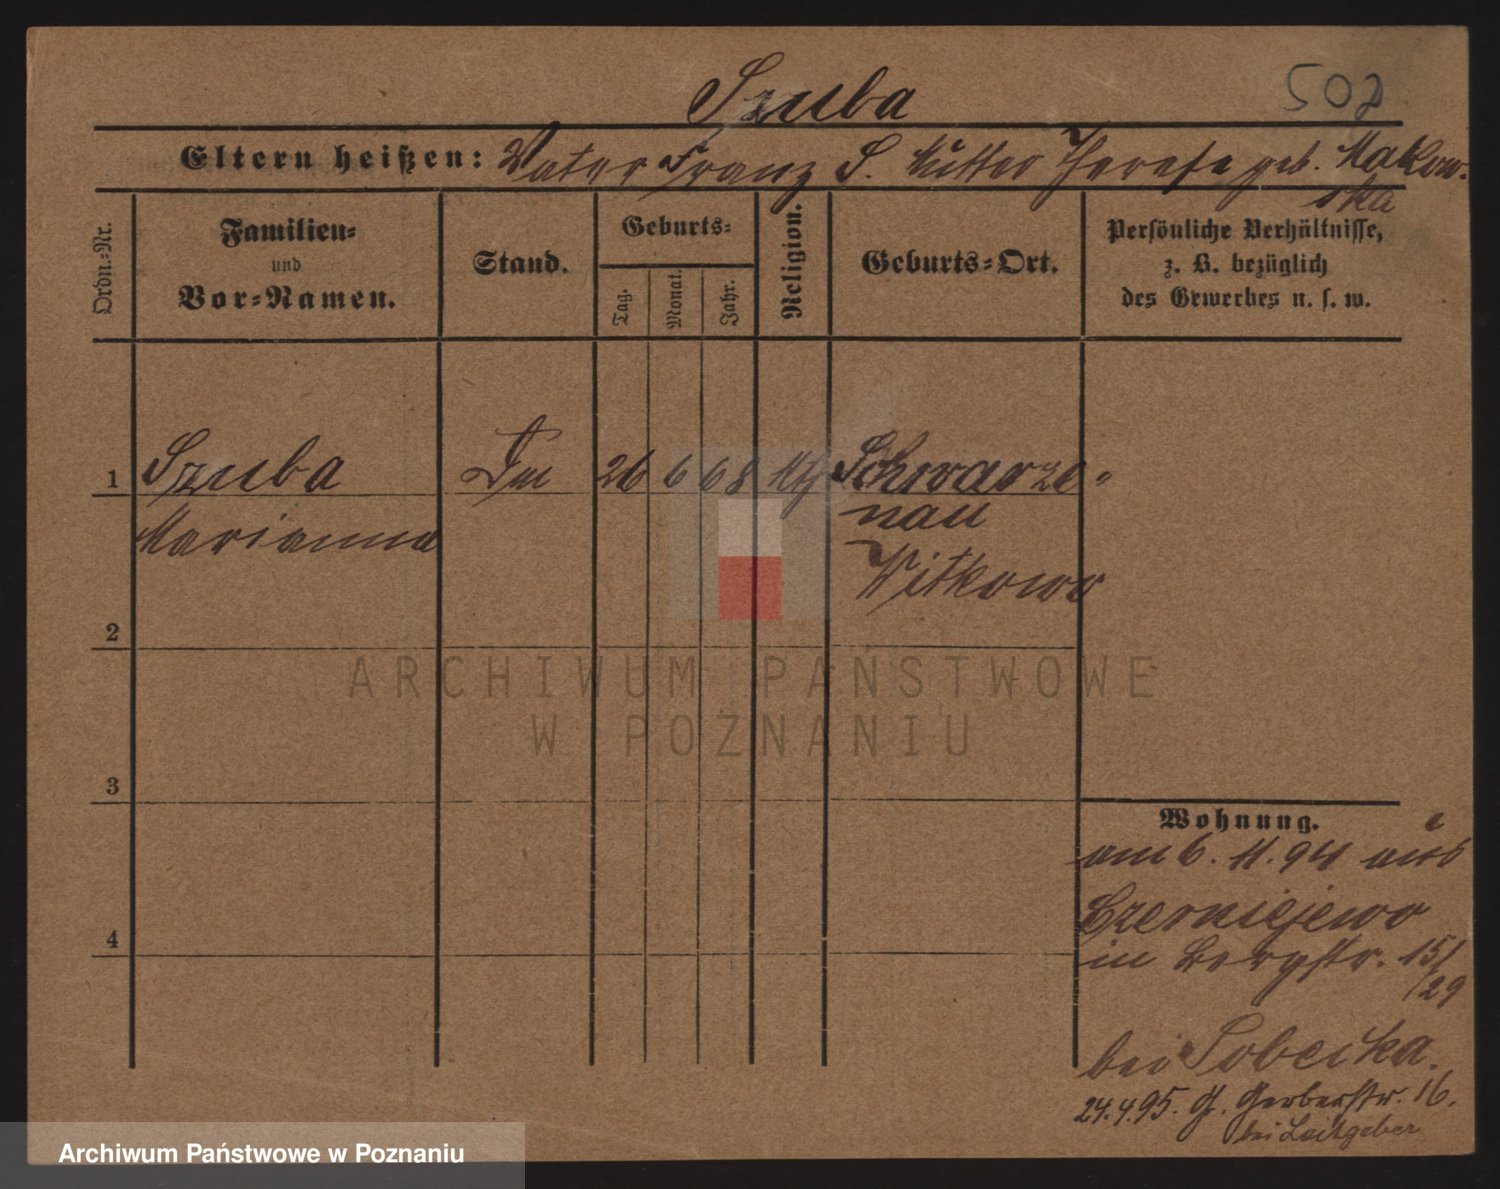 Szuba
502
Eltern heißen: Vater Franz S. Mutter Therese geb. Makow-
ska
Ordn.-Nr.
Familien-
und
Vor-Namen.
Stand.
Geburts-
Tag.
Monat.
Jahr.
Religion.
Geburts-Ort.
Persönliche Verhältnisse,
z. B. bezüglich
des Gewerbes u. s. w.
1 Szuba 26 6 68 kth Schwarze-
Marianna nau
Witkowo
2
3
4
Wohnung.
am 6. 11. 94 aus
Czerniejewo
in Bergstr. 15/
/29
bei Sobecka.
24.4.95. Gerberstr. 16.
bei Leitgeber
ARCHIWUM PAŃSTWOWE
W POZNANIU
Archiwum Państwowe w Poznaniu